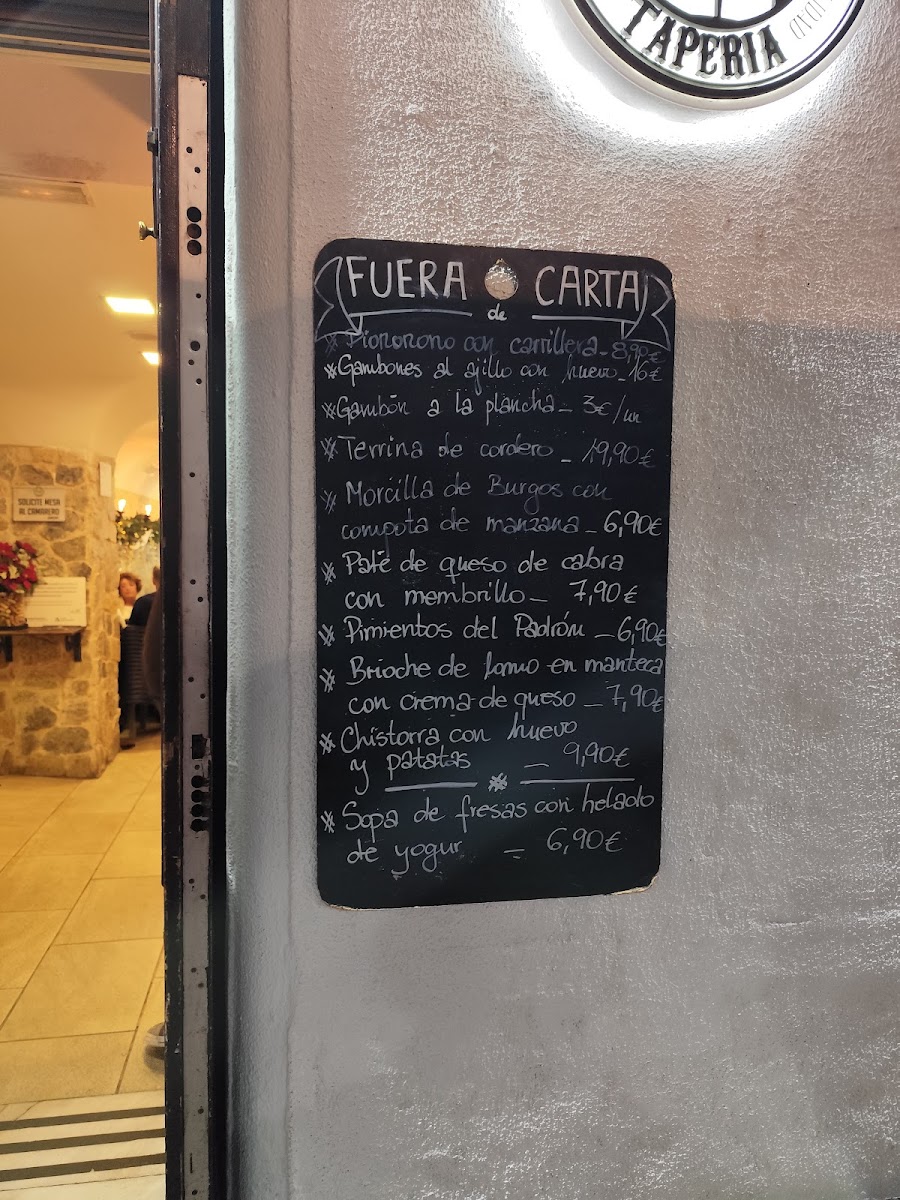 TAPERIA
FUERA de CARTA
* Piononono con carrillera - 8,90€
* Gambones al ajillo con huevo - 16€
* Gambón a la plancha - 3€/un
* Terrina de cordero - 19,90€
* Morcilla de Burgos con
compota de manzana - 6,90€
* Paté de queso de cabra
con membrillo - 7,90€
* Pimientos del Padrón - 6,90€
* Brioche de lomo en manteca
con crema de queso - 7,90€
* Chistorra con huevo
y patatas - 9,90€
*
* Sopa de fresas con helado
de yogur - 6,90€
SOLICITE MESA
AL CAMARERO